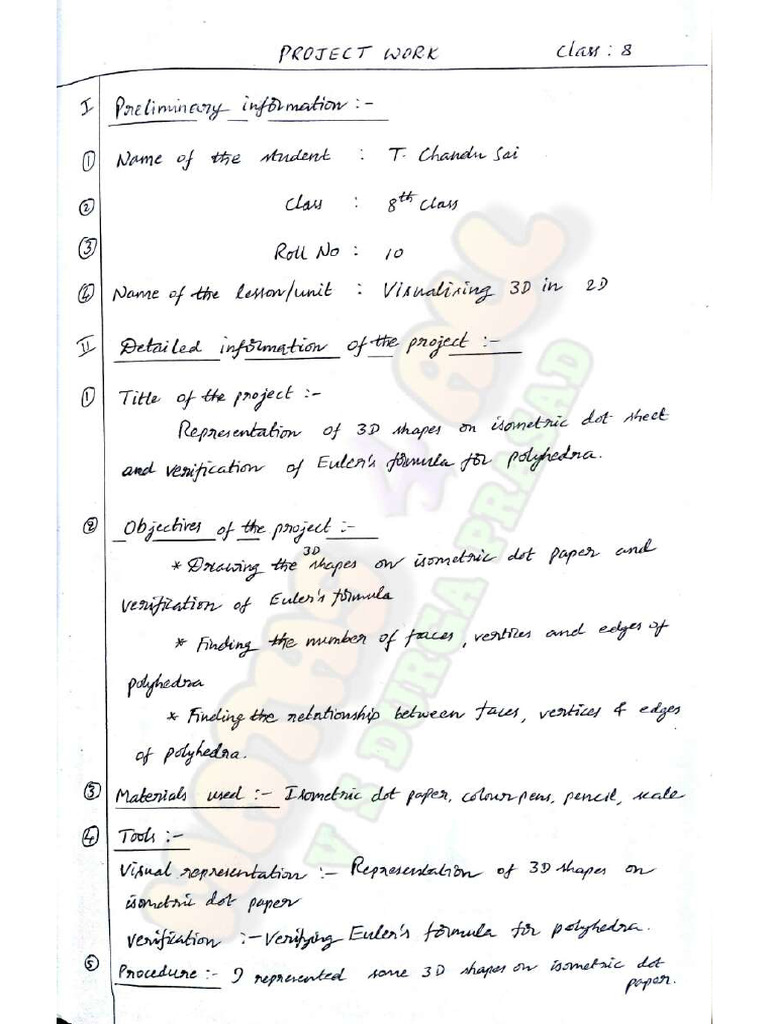 PROJECT WORK Class : 8
I Preliminary information :-
① Name of the student : T. Chandu Sai
② Class : 8th Class
③ Roll No : 10
④ Name of the lesson/unit : Visualising 3D in 2D
II Detailed information of the project :-
① Title of the project :-
Representation of 3D shapes on isometric dot sheet
and verification of Euler's formula for polyhedra.
② Objectives of the project :-
* Drawing the 3D shapes on isometric dot paper and
verification of Euler's formula
* Finding the number of faces, vertices and edges of
polyhedra
* Finding the relationship between faces, vertices & edges
of polyhedra.
③ Materials used :- Isometric dot paper, colour pens, pencil, scale
④ Tools :-
Visual representation :- Representation of 3D shapes on
isometric dot paper
verification :- Verifying Euler's formula for polyhedra.
⑤ Procedure :- I represented some 3D shapes on isometric dot
paper.
MATHS 4 ALL
V S DURGA PRASAD